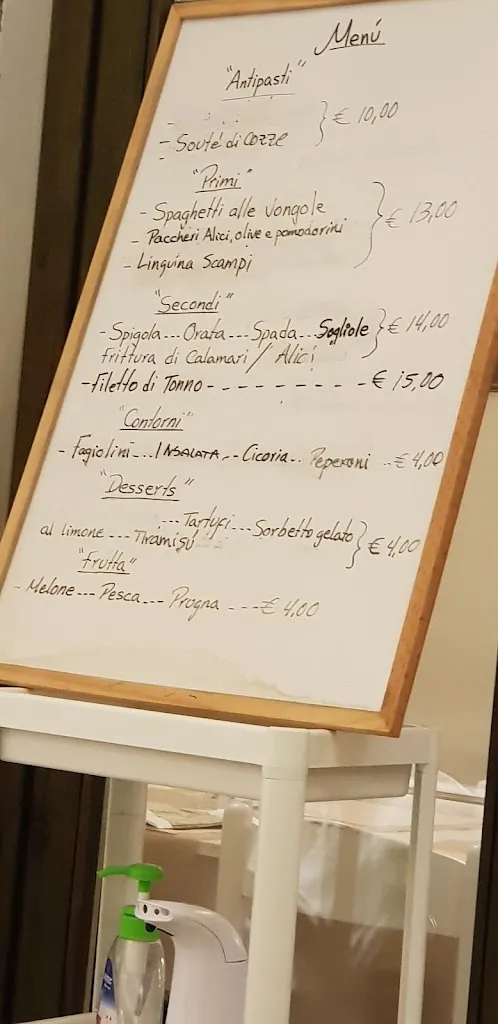 Menú
"Antipasti"
- Souté di Cozze } € 10,00
"Primi"
- Spaghetti alle Vongole
- Paccheri Alici, olive e pomodorini } € 13,00
- Linguina Scampi
"Secondi"
- Spigola --- Orata --- Spada --- Sogliole } € 14,00
frittura di Calamari / Alici
- Filetto di Tonno - - - - - - - - - € 15,00
"Contorni"
- Fagiolini --- INSALATA -- Cicoria -- Peperoni -- € 4,00
"Desserts"
--- Tartufi --- Sorbetto gelato } € 4,00
al limone --- Tiramisú
"frutta"
- Melone --- Pesca --- Prugna --- € 4,00